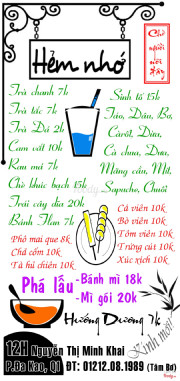 Hẻm nhớ
Chỗ
người
nổi
tiếng
Trà chanh 7k
Trà tắc 7k
Trà Đá 2k
Cam vắt 10k
Rau má 7k
Chè khúc bạch 15k
Trái cây dĩa 20k
Bánh Flan 7k
Sinh tố 15k
Táo, Dâu, Bơ
Cà rốt, Dừa,
Cà chua, Dưa,
Mãng cầu, Mít,
Sapoche, Chuối
Phô mai que 8k
Chả cốm 10k
Tã hủ chiên 10k
Cá viên 10k
Bò viên 10k
Tôm viên 10k
Trứng cút 10k
Xúc xích 10k
Phá lấu
-Bánh mì 18k
- Mì gói 20k
Hướng Dương 7k
Kính mời!
12H Nguyễn Thị Minh Khai
P.Đa Kao, Q1 ĐT: 01212.08.1989 (Tâm Bơ)